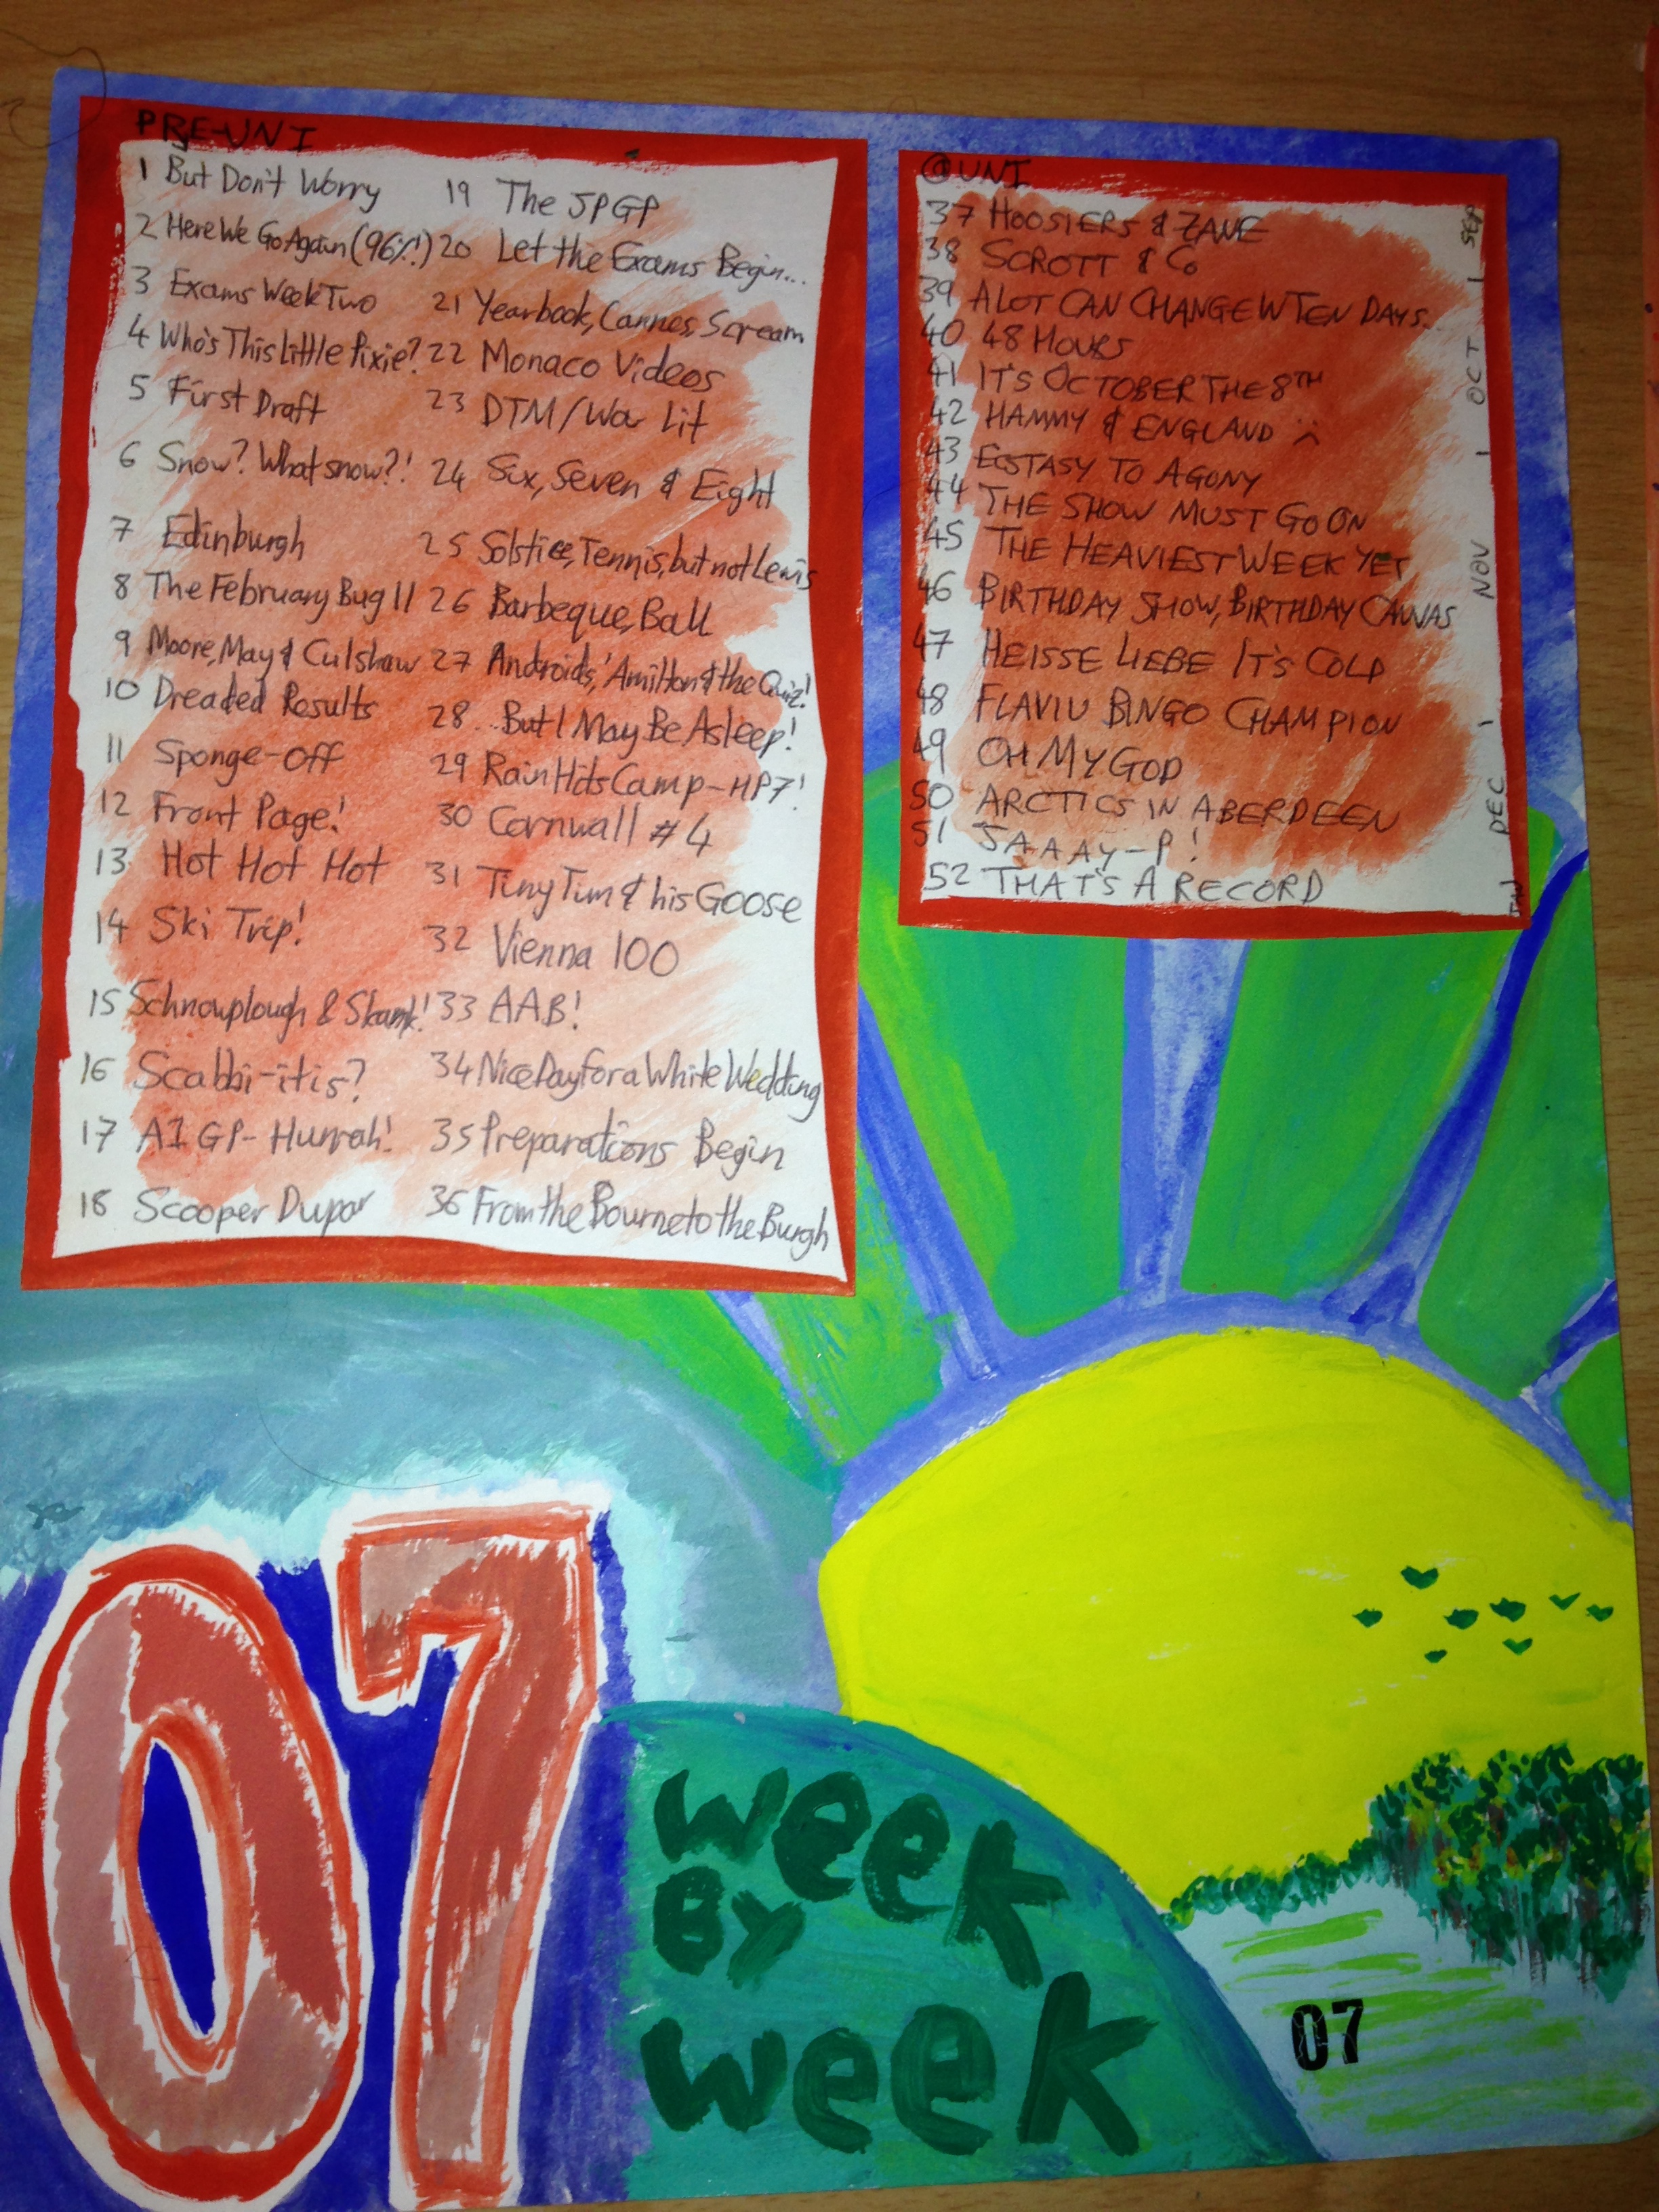 PRE-UNI
1 But Don't Worry
2 Here We Go Again (96%!)
3 Exams Week Two
4 Who's This Little Pixie?
5 First Draft
6 Snow? What snow?!
7 Edinburgh
8 The February Bug II
9 Moore, May & Culshaw
10 Dreaded Results
11 Sponge-Off
12 Front Page!
13 Hot Hot Hot
14 Ski Trip!
15 Schnowplough & Skank!
16 Scabbi-itis?
17 A1 GP - Hurrah!
18 Scooper Dupar
19 The JPGP
20 Let the Exams Begin...
21 Yearbook, Cannes, Scream
22 Monaco Videos
23 DTM/War Lit
24 Six, Seven & Eight
25 Solstice, Tennis, but not Lewis
26 Barbeque, Ball
27 Androids, 'Amilton & the Quiz!
28 ...But I May Be Asleep!
29 Rain Hits Camp - HP7!
30 Cornwall #4
31 Tiny Tim & his Goose
32 Vienna 100
33 AAB!
34 Nice Day for a White Wedding
35 Preparations Begin
36 From the Bourne to the Burgh
@UNI
37 HOOSIERS & ZANE
38 SCROTT & Co
39 A LOT CAN CHANGE IN TEN DAYS...
40 48 HOURS
41 IT'S OCTOBER THE 8TH
42 HAMMY & ENGLAND :(
43 ECSTASY TO AGONY
44 THE SHOW MUST GO ON
45 THE HEAVIEST WEEK YET
46 BIRTHDAY SHOW, BIRTHDAY CANVAS
47 HEISSE LIEBE IT'S COLD
48 FLAVIU BINGO CHAMPION
49 OH MY GOD
50 ARCTICS IN ABERDEEN
51 JAAAY-P!
52 THAT'S A RECORD
SEP
OCT
NOV
DEC
JAN
07
week
By
week
07